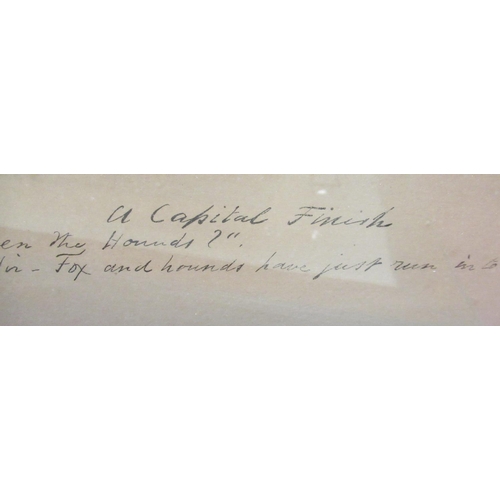 A Capital Finish
en the Hounds?".
Sir - Fox and hounds have just run into